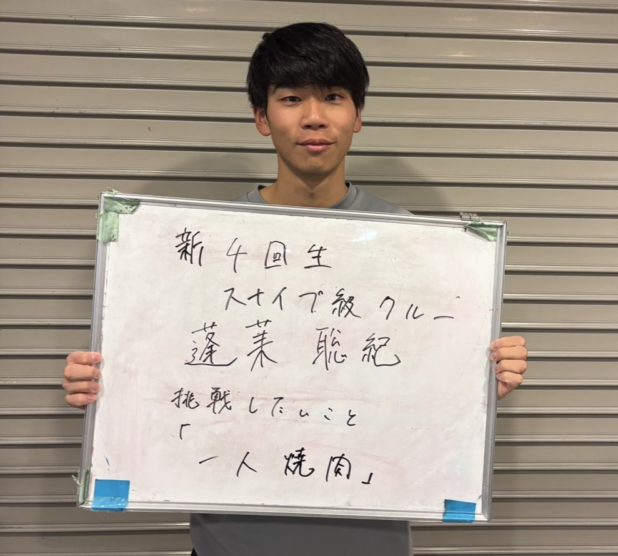 新4回生
スナイプ級クルー
蓬莱 聡紀
挑戦したいこと
「
一人焼肉」